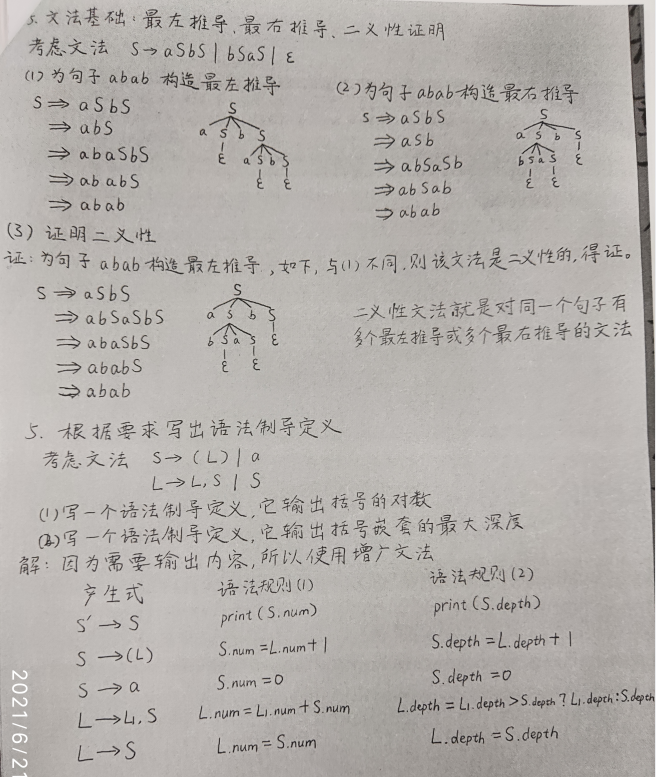 5. 文法基础：最左推导、最右推导、二义性证明
考虑文法 S→aSbS | bSaS | ε
(1) 为句子 abab 构造最左推导
S ⇒ aSbS
⇒ abS
⇒ abaSbS
⇒ ababS
⇒ abab
S
a S b S
ε a S b S
ε ε
(2) 为句子 abab 构造最右推导
S ⇒ aSbS
⇒ aSb
⇒ abSaSb
⇒ abSab
⇒ abab
S
a S b S
b S a S ε
ε ε
(3) 证明二义性
证：为句子 abab 构造最左推导，如下，与(1)不同，则该文法是二义性的，得证。
S ⇒ aSbS
⇒ abSaSbS
⇒ abaSbS
⇒ ababS
⇒ abab
S
a S b S
b S a S ε
ε ε
二义性文法就是对同一个句子有
多个最左推导或多个最右推导的文法
5. 根据要求写出语法制导定义
考虑文法 S→(L) | a
L→L, S | S
(1)写一个语法制导定义，它输出括号的对数
(2)写一个语法制导定义，它输出括号嵌套的最大深度
解：因为需要输出内容，所以使用增广文法
产生式 语法规则(1) 语法规则(2)
S'→S print(S.num) print(S.depth)
S→(L) S.num=L.num+1 S.depth=L.depth+1
S→a S.num=0 S.depth=0
L→L₁,S L.num=L₁.num+S.num L.depth=L₁.depth>S.depth?L₁.depth:S.depth
L→S L.num=S.num L.depth=S.depth
2021/6/21